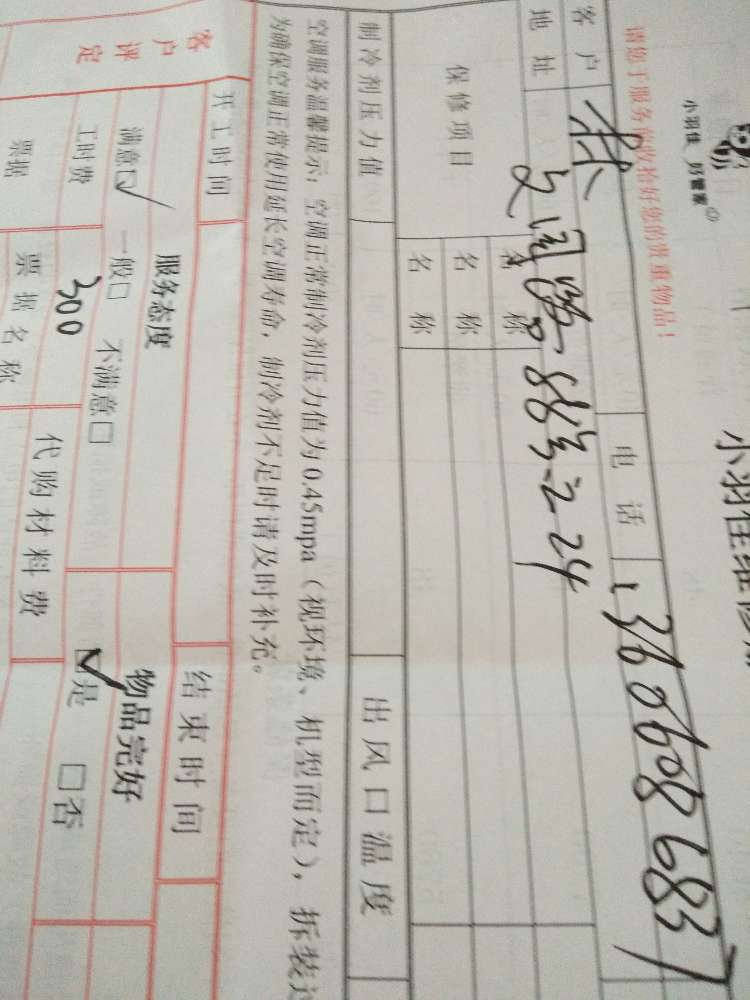 小羽佳、好管家
小羽佳维修
请您于服务前收拾好您的贵重物品！
客户 林 电话 13606086837
地址 文园路88号之24
保修项目 名称
名称
名称
制冷剂压力值 出风口温度
空调服务温馨提示：空调正常制冷剂压力值为0.45mpa（视环境、机型而定），拆装过
为确保空调正常使用延长空调寿命，制冷剂不足时请及时补充。
开工时间 结束时间
客户评定 服务态度 物品完好
满意☑ 一般□ 不满意□ ☑是 □否
工时费 300 代购材料费
票据 票据名称